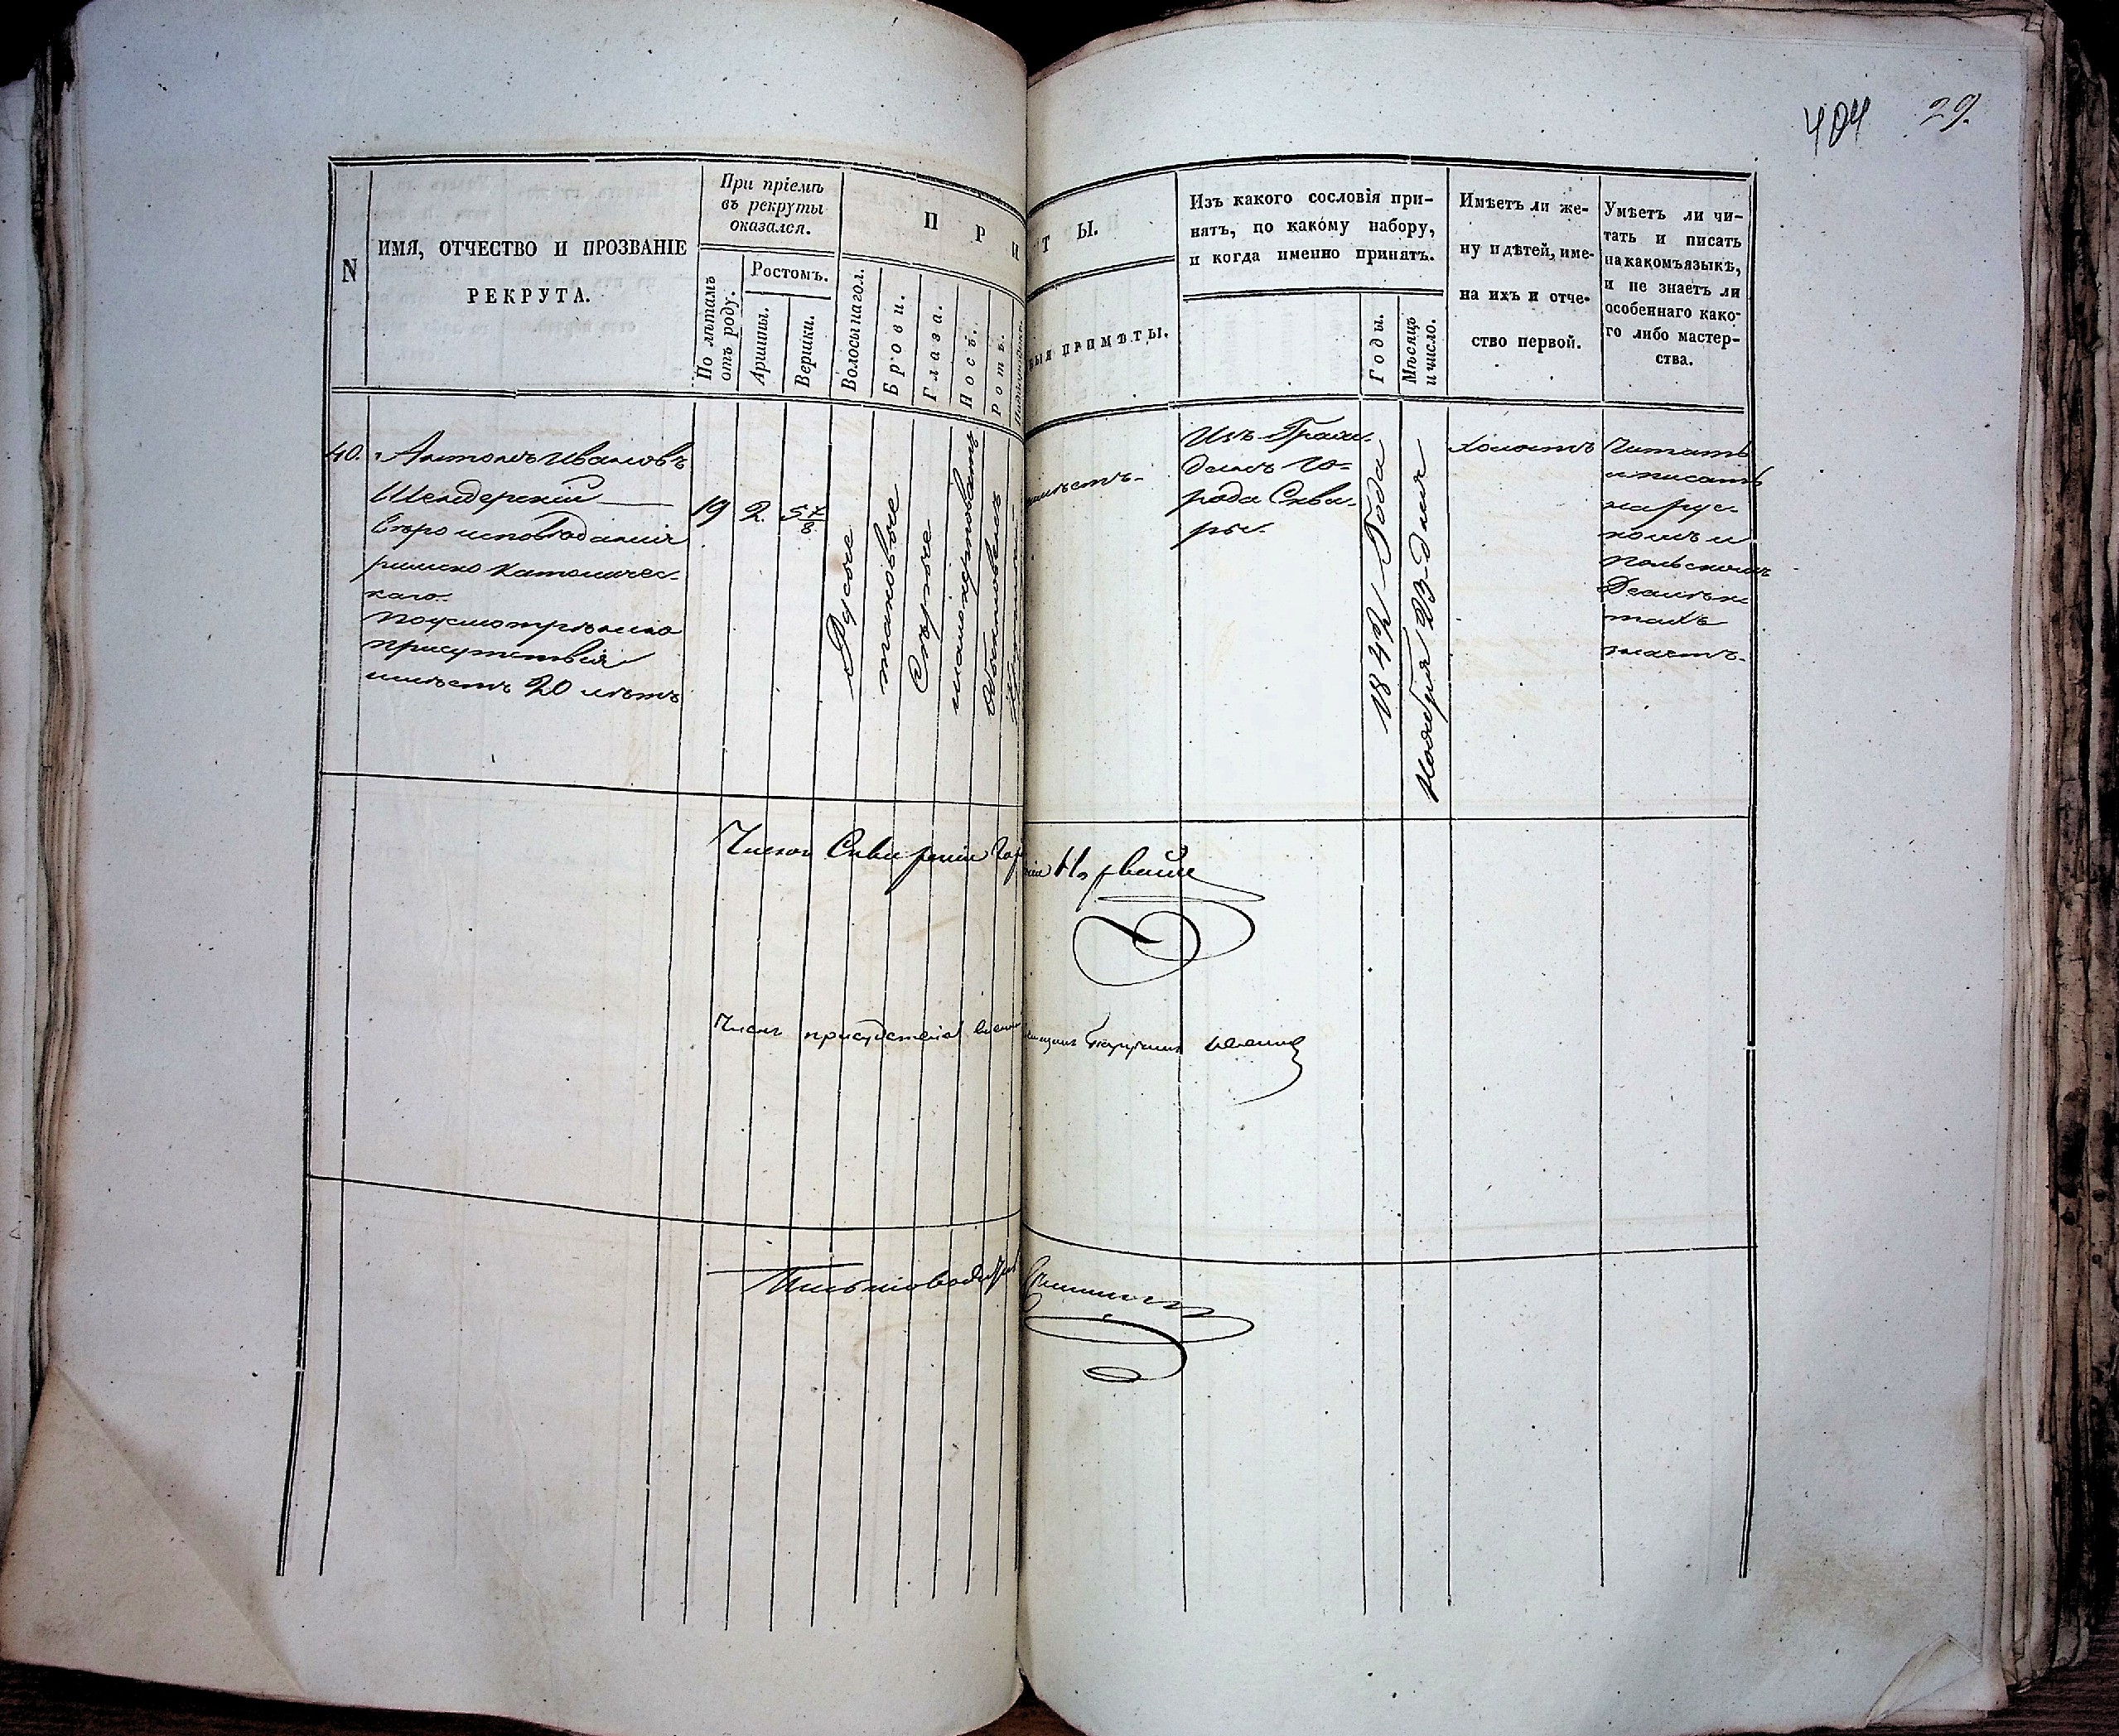 404 29.
N
ИМЯ, ОТЧЕСТВО И ПРОЗВАНІЕ
РЕКРУТА.
При пріемѣ
въ рекруты
оказался.
По лѣтамъ
отъ роду.
Ростомъ.
Аршины.
Вершки.
П Р И
Волосы на гол.
Брови.
Глаза.
Носъ.
Ротъ.
Т Ы.
ПРИМѢТЫ.
Изъ какого сословія при-
нятъ, по какому набору,
и когда именно принятъ.
Годы.
Мѣсяцъ
и число.
Имѣетъ ли же-
ну и дѣтей, име-
на ихъ и отче-
ство первой.
Умѣетъ ли чи-
тать и писать
на какомъ языкѣ,
и не знаетъ ли
особеннаго како-
го либо мастер-
ства.
40.
Антонъ Ивановъ
Шендерскій
Вѣроисповѣданія
римско католичес-
каго.
По усмотрѣнію
присутствія
имѣетъ 20 лѣтъ
19
2.
5 7/8
Русые
таковые
Сѣрые
Обыкновенъ
Изъ Граж-
данъ го-
рода Сквы-
ры.
1842 Года
Ноября 23 дня
Холостъ
Читать
и писать
на рус-
комъ и
польскомъ
знаетъ.
Членъ
Членъ присутствія
Письмоводитель